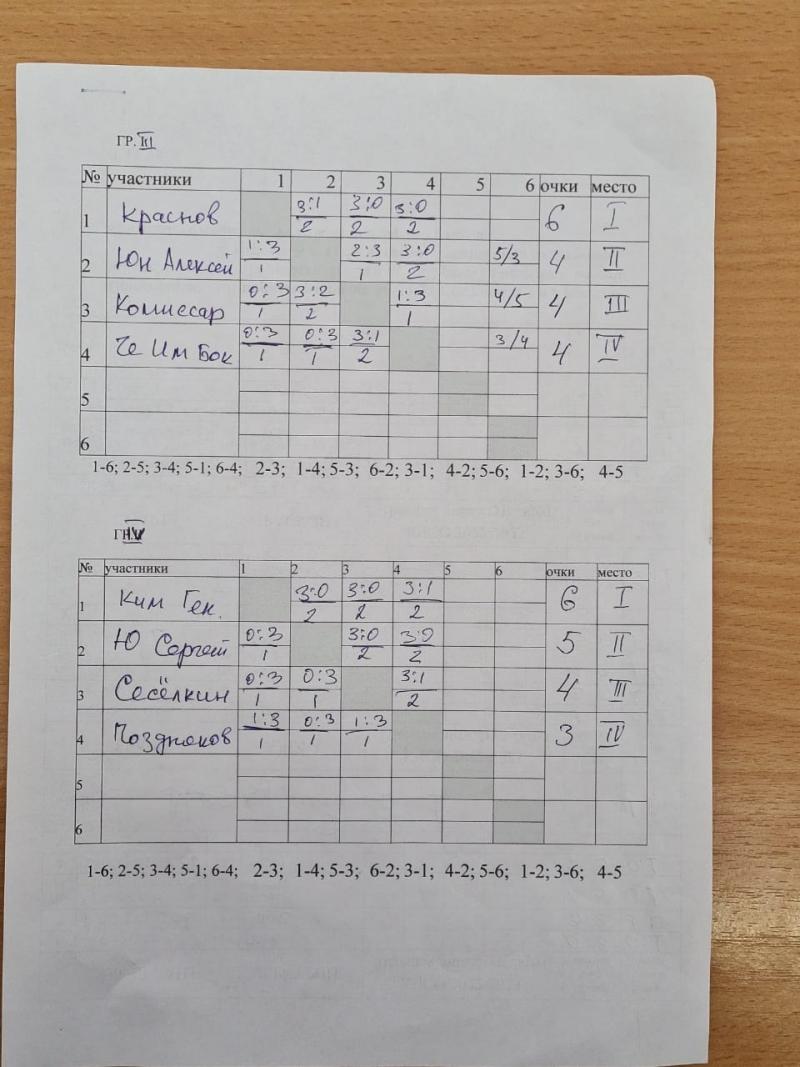 ГР. III
№ участники 1 2 3 4 5 6 очки место
1 Краснов 3:1/2 3:0/2 3:0/2 6 I
2 Юн Алексей 1:3/1 2:3/1 3:0/2 5/3 4 II
3 Комиссар 0:3/1 3:2/2 1:3/1 4/5 4 III
4 Че Им Бок 0:3/1 0:3/1 3:1/2 3/4 4 IV
5
6
1-6; 2-5; 3-4; 5-1; 6-4; 2-3; 1-4; 5-3; 6-2; 3-1; 4-2; 5-6; 1-2; 3-6; 4-5
ГР. IV
№ участники 1 2 3 4 5 6 очки место
1 Ким Ген. 3:0/2 3:0/2 3:1/2 6 I
2 Ю Сергей 0:3/1 3:0/2 3:0/2 5 II
3 Сесёлкин 0:3/1 0:3/1 3:1/2 4 III
4 Поздняков 1:3/1 0:3/1 1:3/1 3 IV
5
6
1-6; 2-5; 3-4; 5-1; 6-4; 2-3; 1-4; 5-3; 6-2; 3-1; 4-2; 5-6; 1-2; 3-6; 4-5